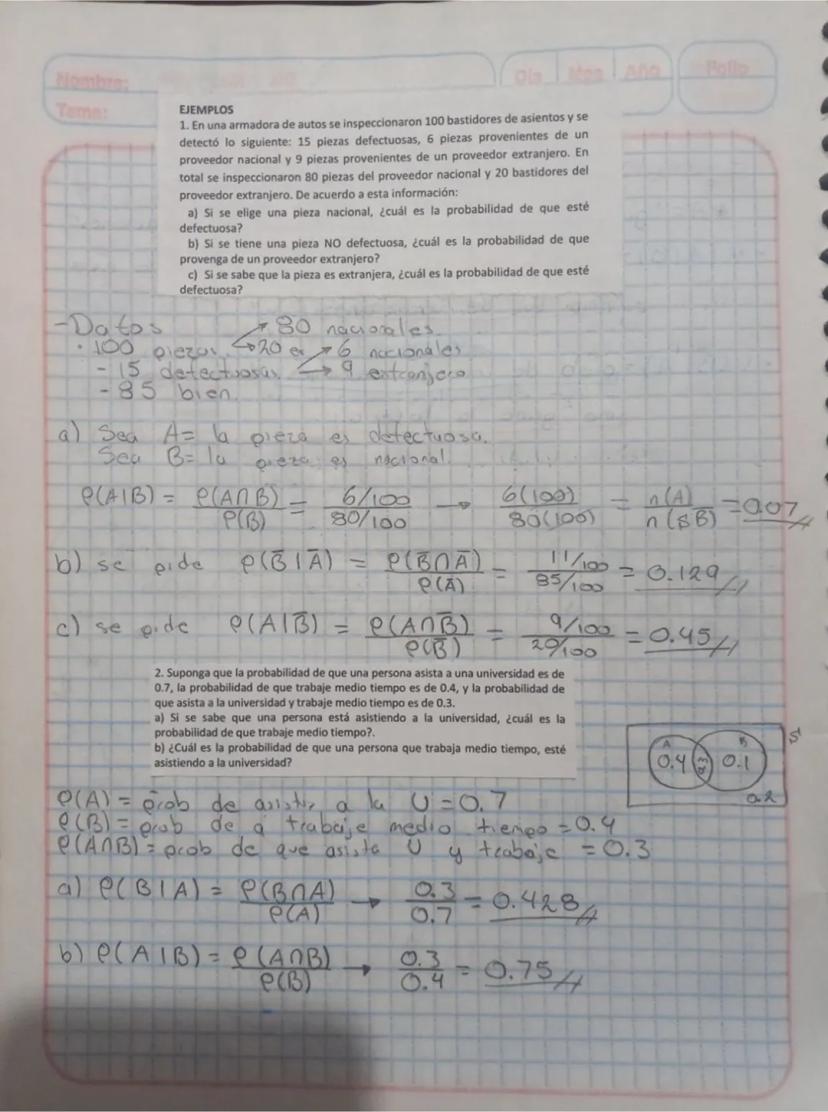 Nombre:
Tema:
Día Mes Año
Folio
EJEMPLOS
1. En una armadora de autos se inspeccionaron 100 bastidores de asientos y se
detectó lo siguiente: 15 piezas defectuosas, 6 piezas provenientes de un
proveedor nacional y 9 piezas provenientes de un proveedor extranjero. En
total se inspeccionaron 80 piezas del proveedor nacional y 20 bastidores del
proveedor extranjero. De acuerdo a esta información:
a) Si se elige una pieza nacional, ¿cuál es la probabilidad de que esté
defectuosa?
b) Si se tiene una pieza NO defectuosa, ¿cuál es la probabilidad de que
provenga de un proveedor extranjero?
c) Si se sabe que la pieza es extranjera, ¿cuál es la probabilidad de que esté
defectuosa?
- Datos → 80 nacionales
· 100 piezas → 20 ex → 6 nacionales
- 15 defectuosas → 9 extranjero
- 85 bien
a) Sea A = la pieza es defectuosa.
Sea B = la pieza es nacional.
P(A|B) = P(A∩B)/P(B) = 6/100 / 80/100 → 6(100)/80(100) = n(A)/n(SB) = 0.07
b) se pide P(B̄|Ā) = P(B̄∩Ā)/P(Ā) = 11/100 / 85/100 = 0.129
c) se pide P(A|B̄) = P(A∩B̄)/P(B̄) = 9/100 / 20/100 = 0.45
2. Suponga que la probabilidad de que una persona asista a una universidad es de
0.7, la probabilidad de que trabaje medio tiempo es de 0.4, y la probabilidad de
que asista a la universidad y trabaje medio tiempo es de 0.3.
a) Si se sabe que una persona está asistiendo a la universidad, ¿cuál es la
probabilidad de que trabaje medio tiempo?.
b) ¿Cuál es la probabilidad de que una persona que trabaja medio tiempo, esté
asistiendo a la universidad?
A B S
0.4 0.3 0.1
0.2
P(A) = prob de asistir a la U = 0.7
P(B) = prob de a trabaje medio tiempo = 0.4
P(A∩B) = prob de que asista U y trabaje = 0.3
a) P(B|A) = P(B∩A)/P(A) → 0.3/0.7 = 0.428
b) P(A|B) = P(A∩B)/P(B) → 0.3/0.4 = 0.75